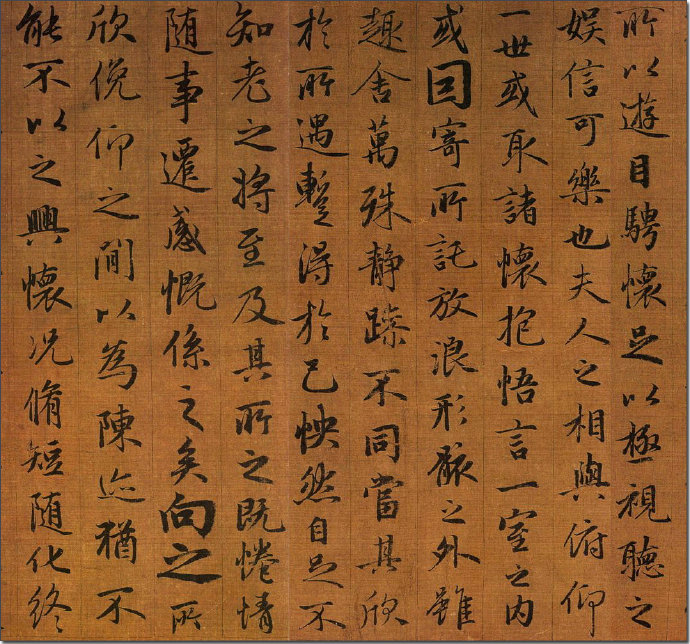 所以遊目騁懷足以極視聽之
娛信可樂也夫人之相與俯仰
一世或取諸懷抱悟言一室之内
或因寄所託放浪形骸之外雖
趣舍萬殊静躁不同當其欣
於所遇蹔得於己怏然自足不
知老之將至及其所之既惓情
随事遷感慨係之矣向之所
欣俛仰之閒以為陳迹猶不
能不以之興懷况脩短随化終